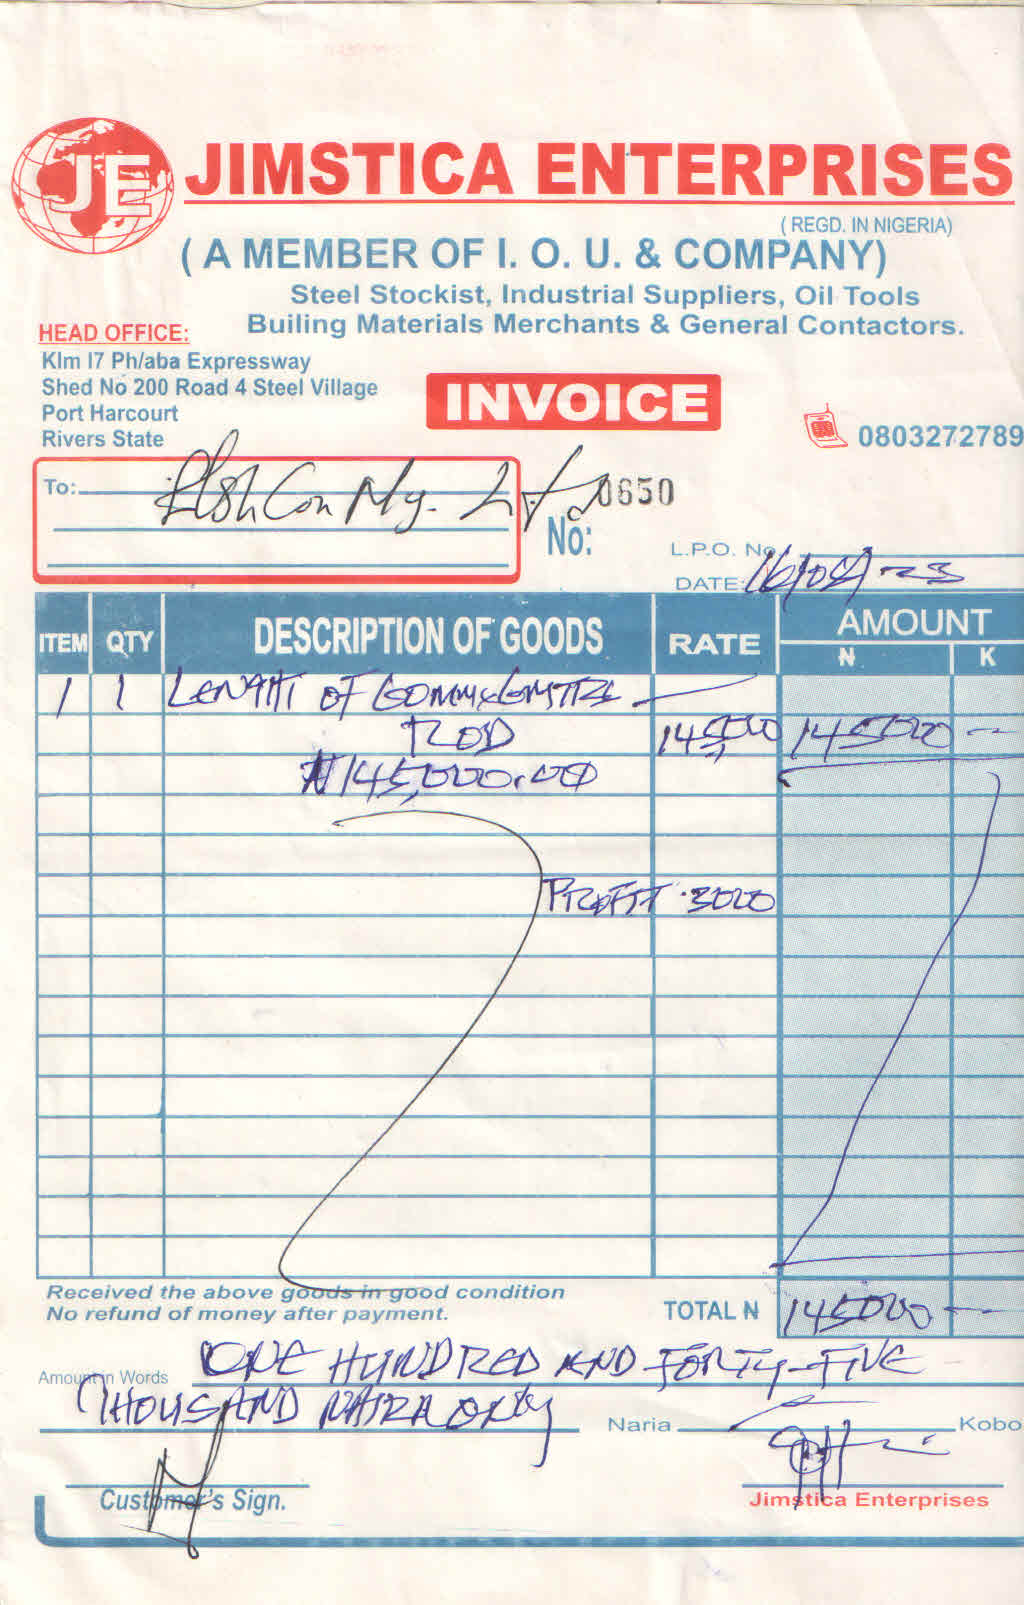 JE JIMSTICA ENTERPRISES
( REGD. IN NIGERIA)
( A MEMBER OF I. O. U. & COMPANY)
Steel Stockist, Industrial Suppliers, Oil Tools
Builing Materials Merchants & General Contactors.
HEAD OFFICE:
Klm I7 Ph/aba Expressway
Shed No 200 Road 4 Steel Village
Port Harcourt
Rivers State
INVOICE
0803272789
To:
0650
No:
L.P.O. No
DATE: 16/08/-23
ITEM QTY DESCRIPTION OF GOODS RATE AMOUNT
N K
1 1 LENGTH OF
ROD 145,000 145000 --
N145,000.00
PROFIT 3000
Received the above goods in good condition
No refund of money after payment.
TOTAL N 145000 --
Amount in Words ONE HUNDRED AND FORTY-FIVE
THOUSAND NAIRA ONLY Naria Kobo
Customer's Sign. Jimstica Enterprises